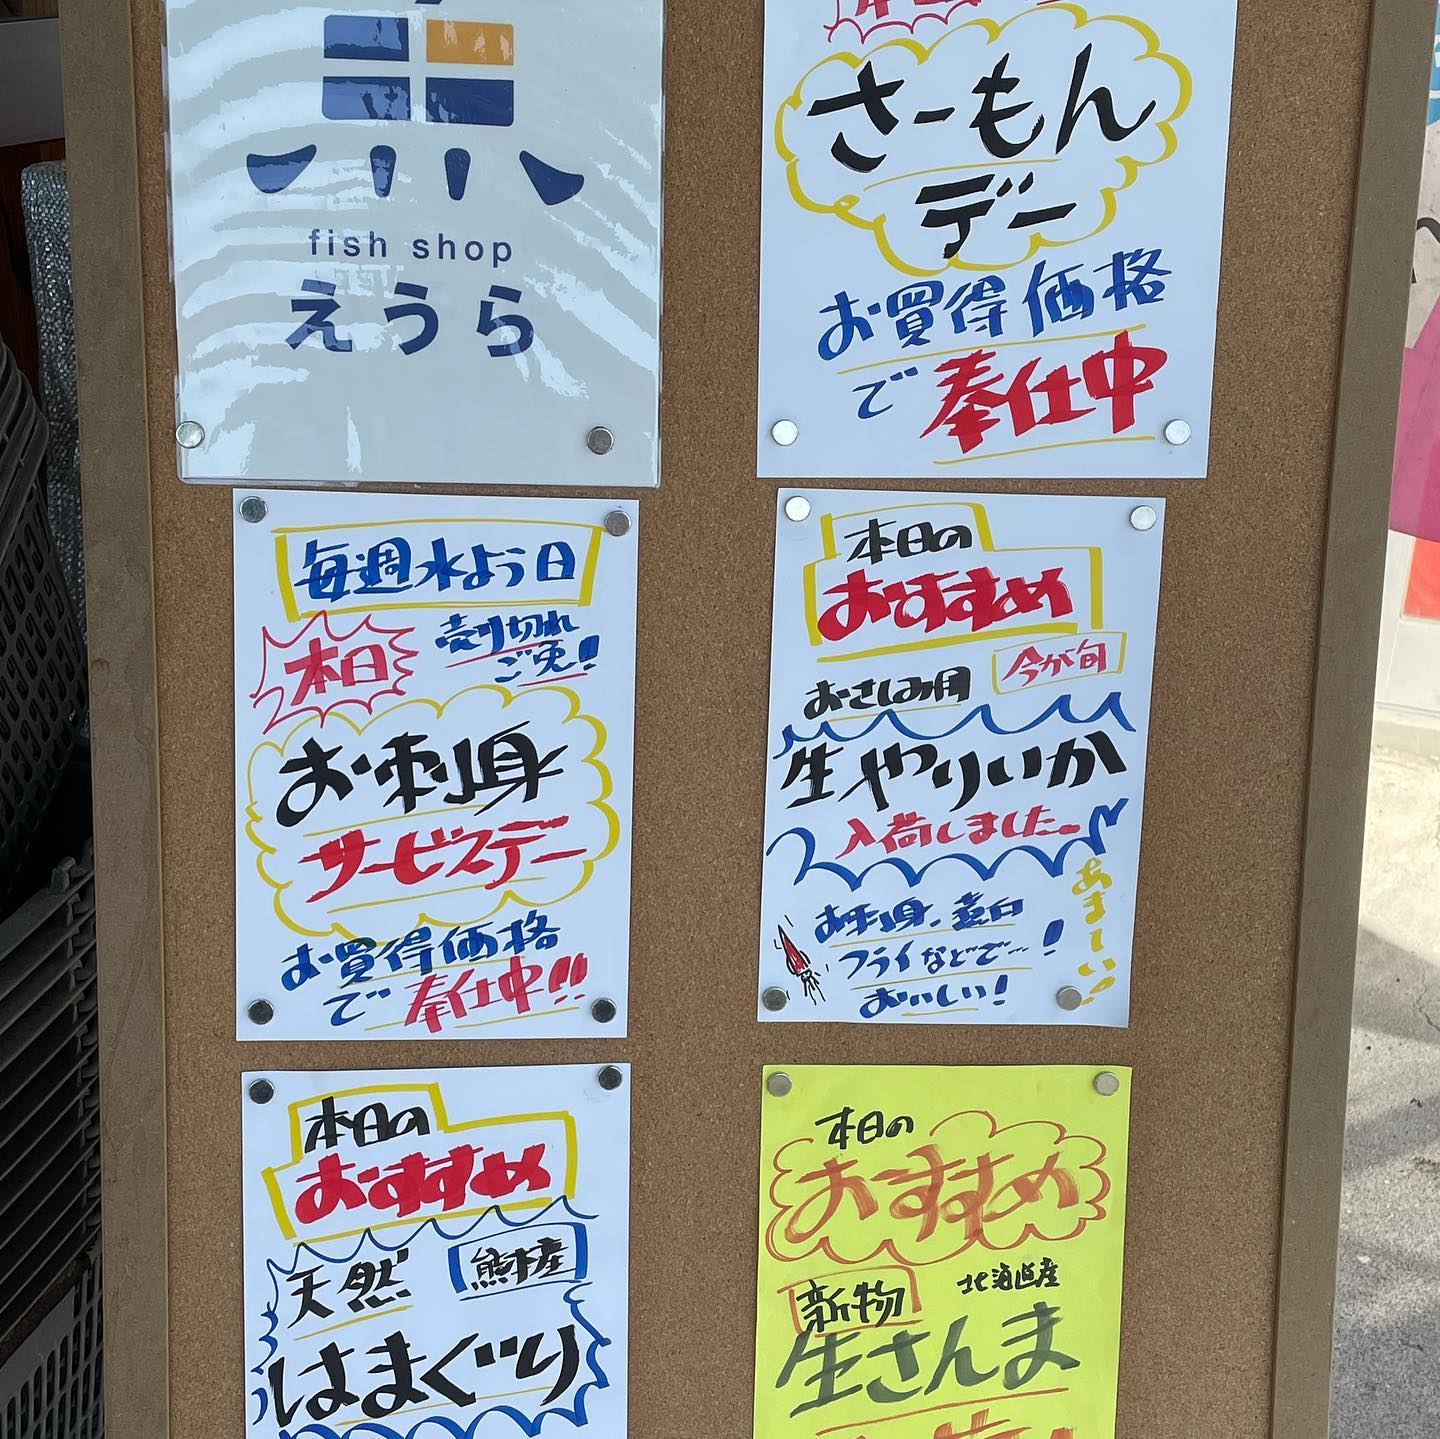 fish shop
えうら
さーもん
デー
お買得価格
で奉仕中
毎週水よう日
本日
売り切れ
ご免!
お刺身
サービスデー
お買得価格
で奉仕中!!
本日の
おすすめ
今が旬
おさしみ用
生やりいか
入荷しました。
お刺身、煮白
フライなどで…!
おいしい!
あまーい!
本日の
おすすめ
天然
熊本産
はまぐり
本日の
おすすめ
新物
北海道産
生さんま